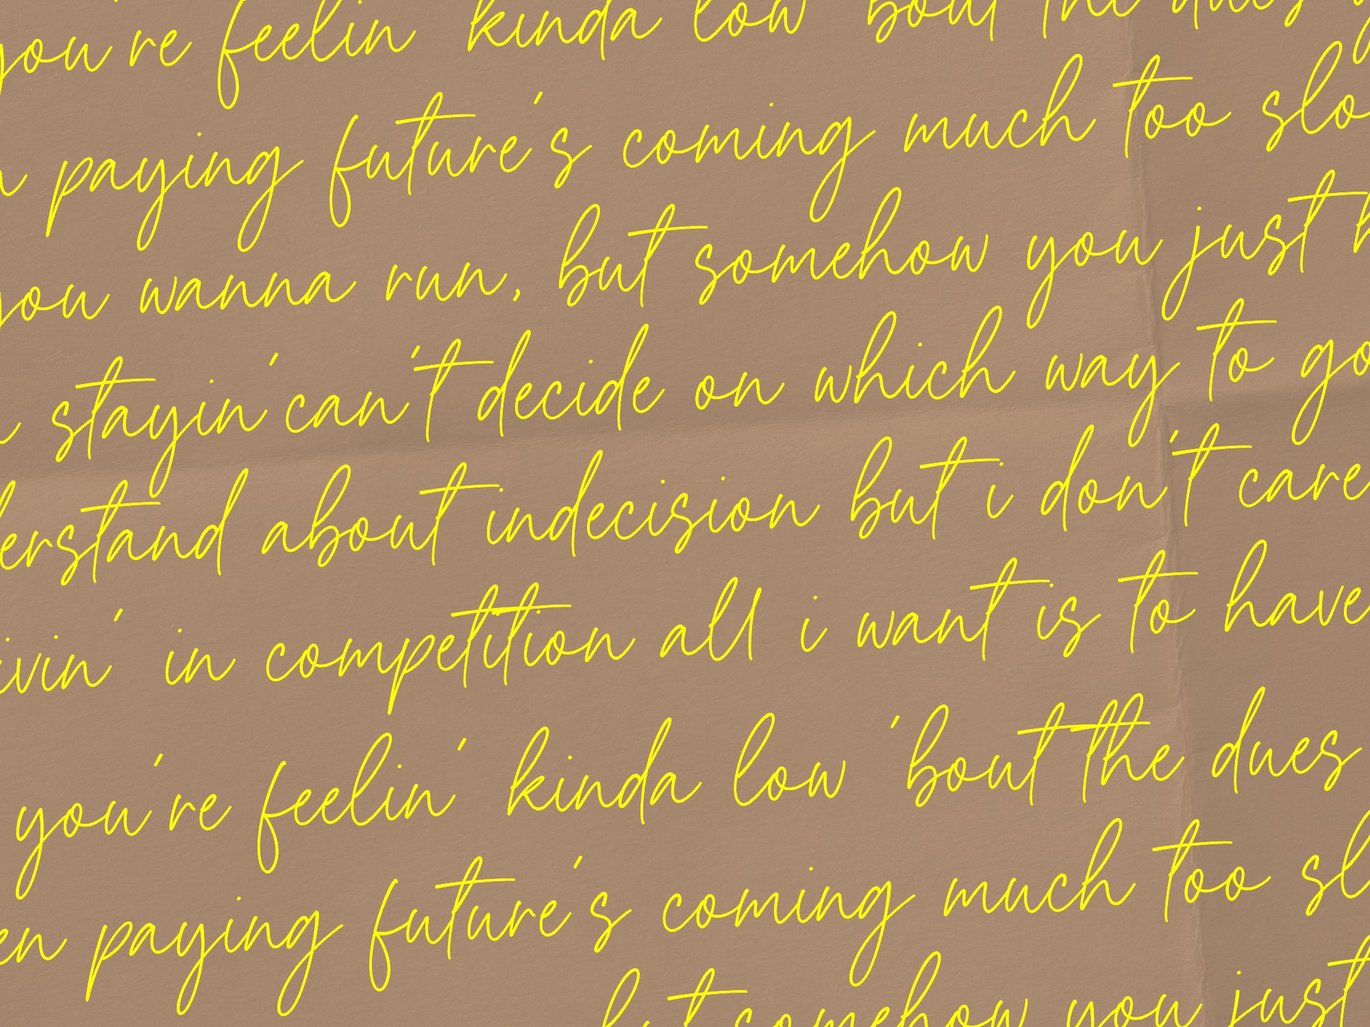 you're feelin' kinda low 'bout the dues
paying future's coming much too slo
you wanna run, but somehow you just
stayin' can't decide on which way to go
erstand about indecision but i don't care
ivin' in competition all i want is to have
you're feelin' kinda low 'bout the dues
en paying future's coming much too sl
but somehow you just